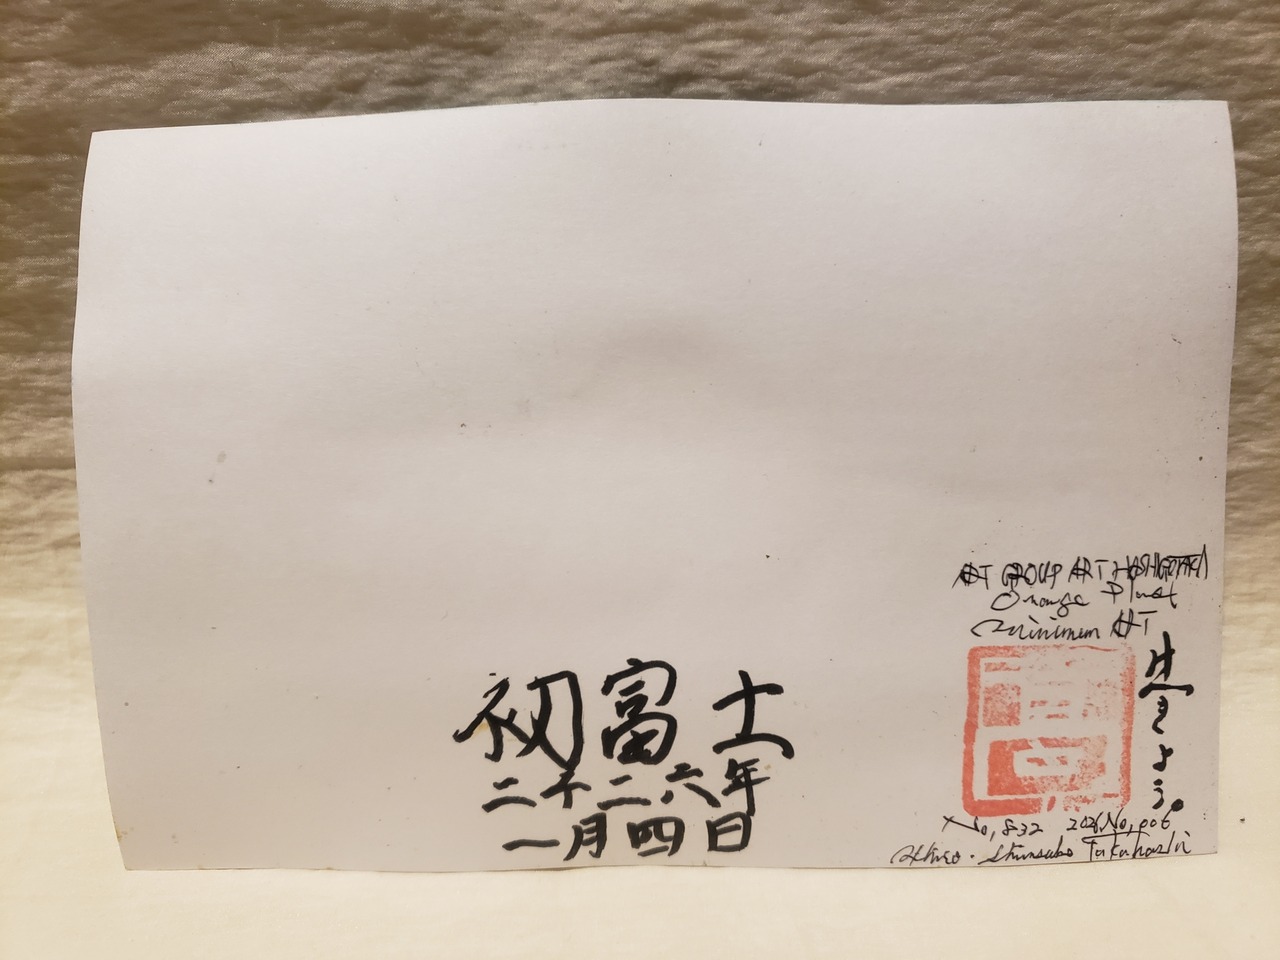 初富士
二千二六年
一月四日
ART GROUP ART HASHIGOTAKA
Orange Planet
Minimum ART
生きよう。
No,832 2026,No,006
Takahashi